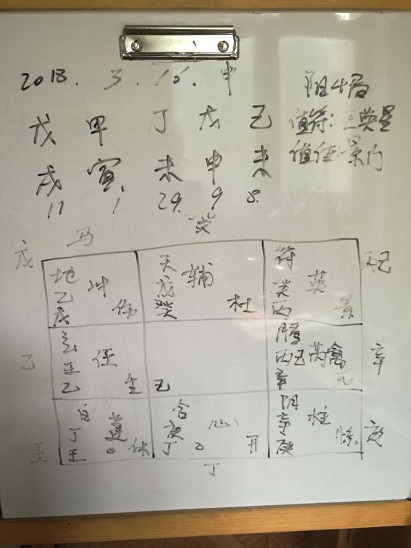 2018. 3. 10. 申 阳4局
戊 甲 丁 戊 己 值符:天英星
戌 寅 未 申 未 值使:景门
17 1 29. 9 8.
癸
戊 马
地 冲 天 辅 符 英
乙 戊 癸
戊 伤 癸 杜 丙 景
乙 玄 任 腾 芮禽 辛
壬 丙 己
乙 生 己 辛
白 蓬 合 心 阴 柱
丁 庚 辛
壬 壬 0 休 丁 0 开 庚 惊 庚
丁